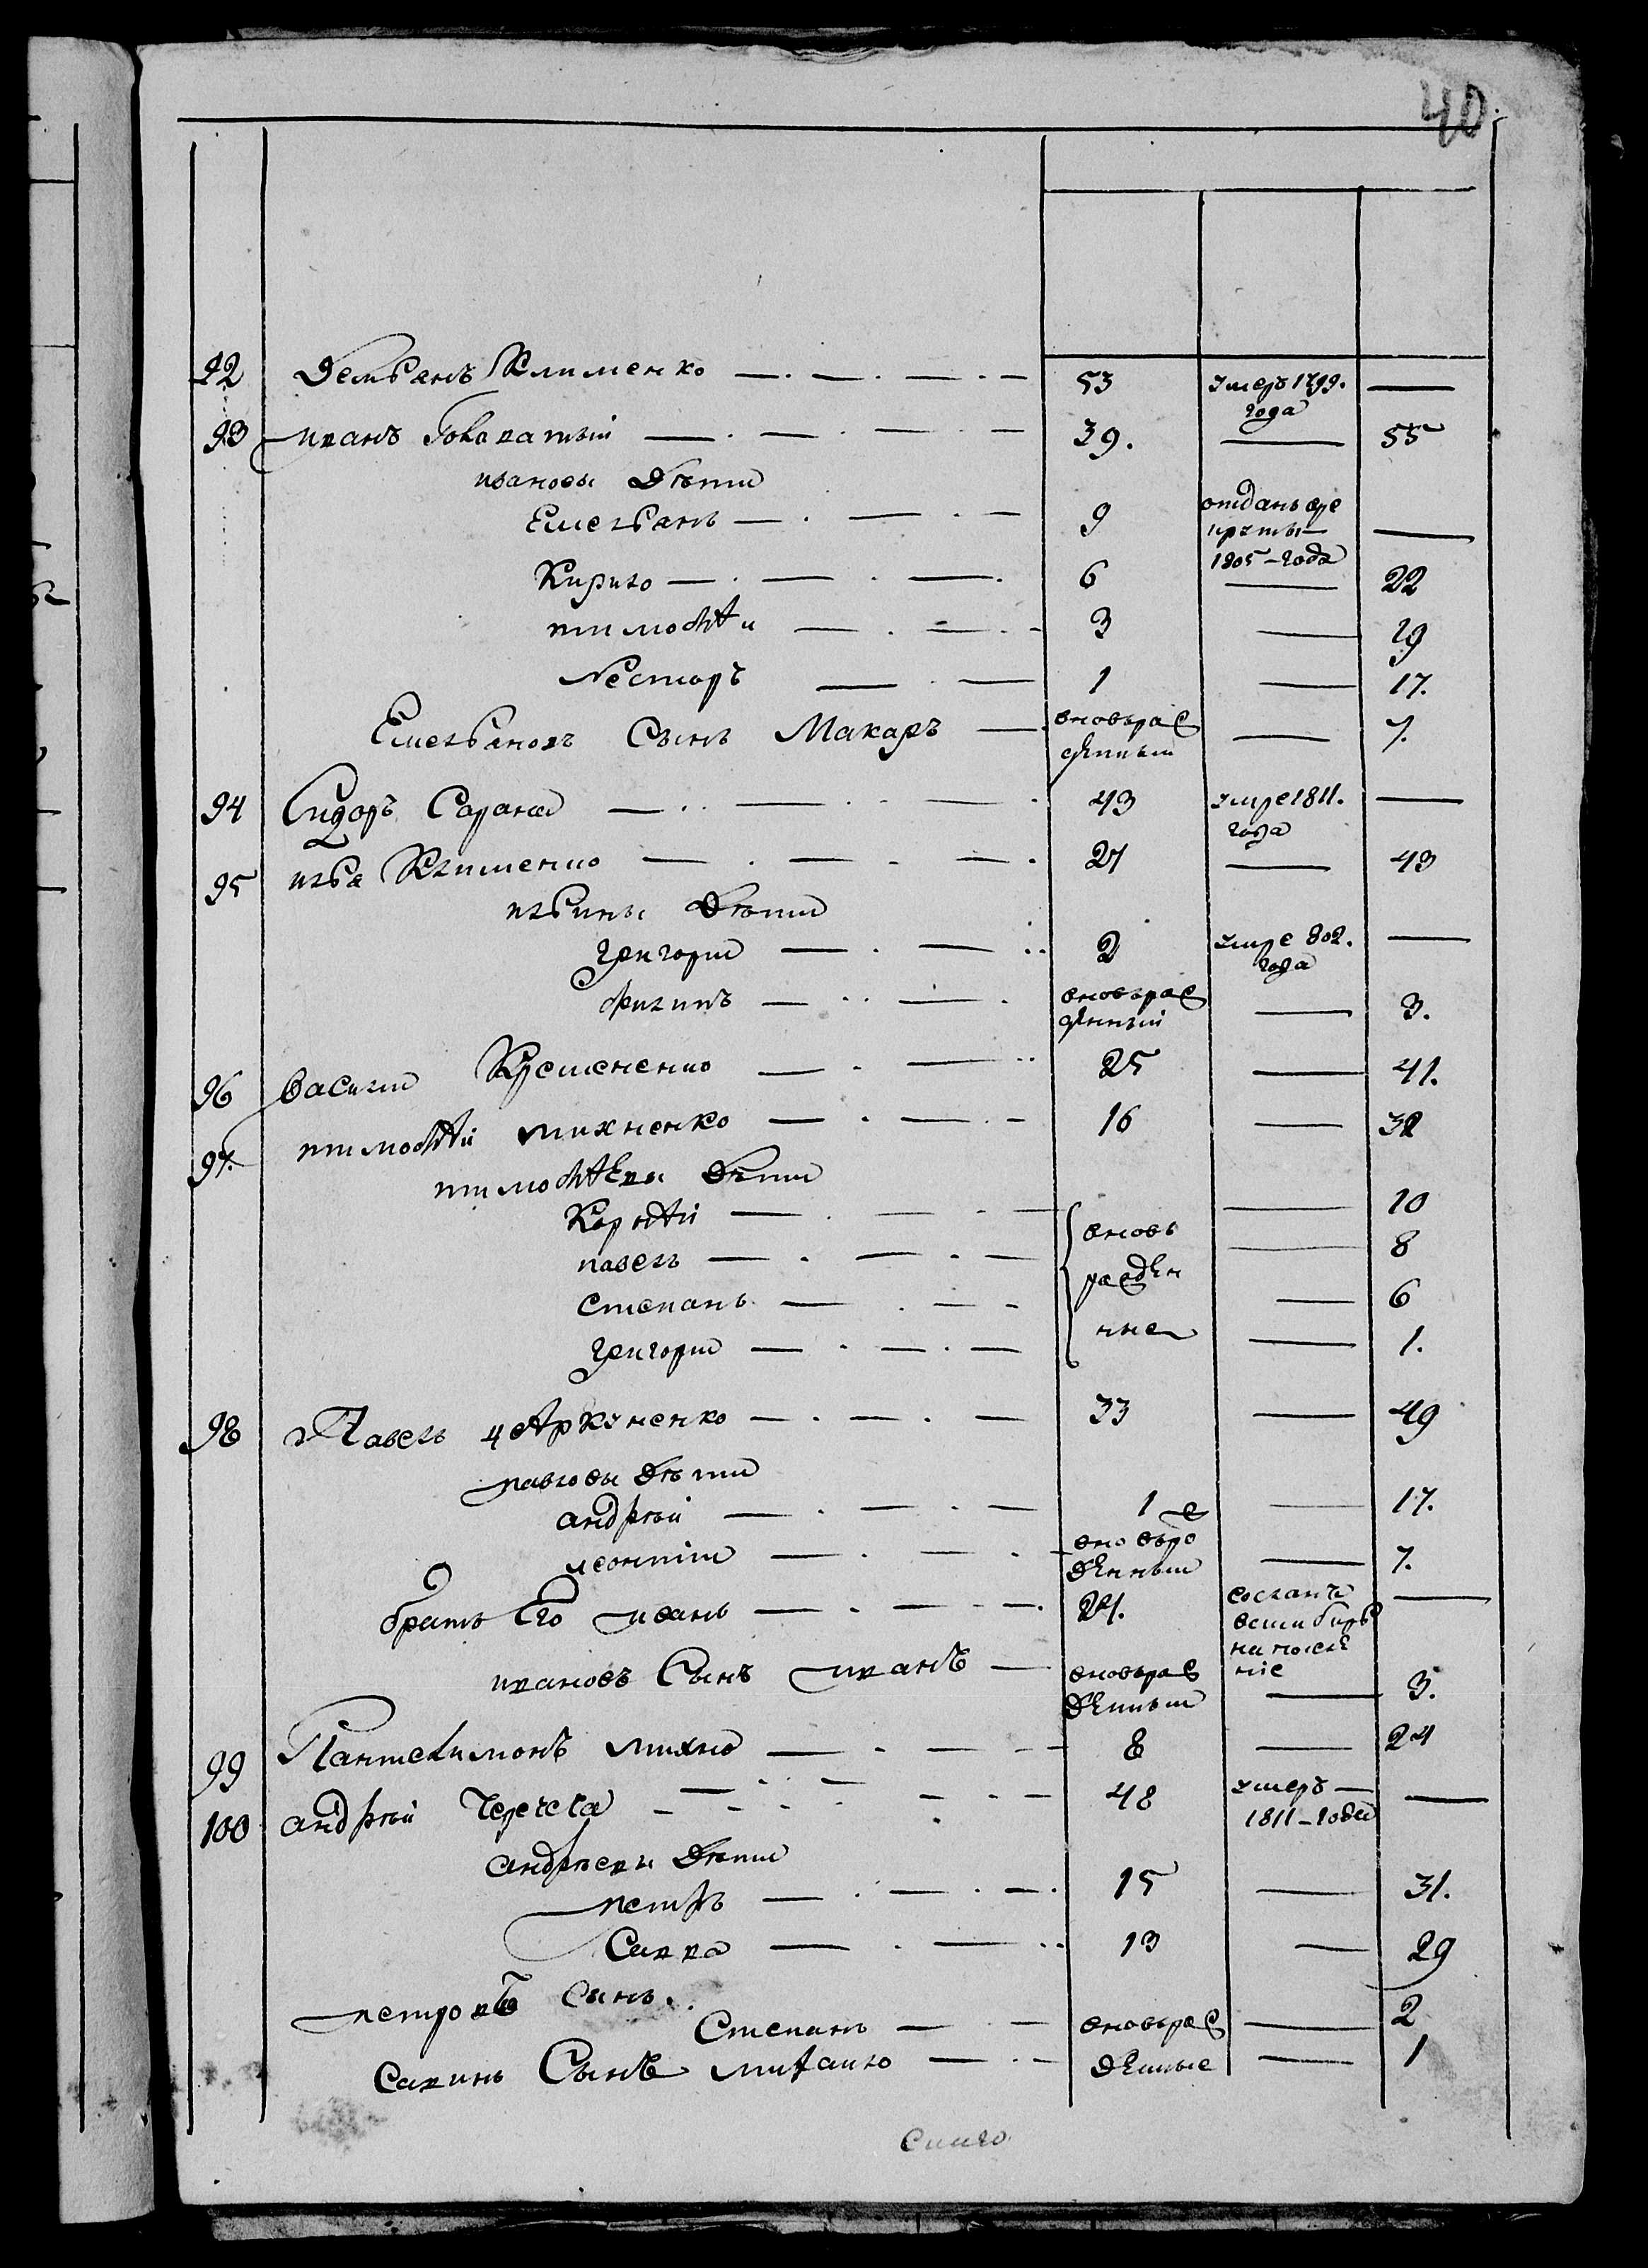 40.
92 Демьянъ Клименко 53 умеръ 1799. года —
93 иванъ Головатый 39. — 55
ивановы Дѣти
Емельянъ 9 отданъ вре круты 1805 - года —
Кирило 6 — 22
тимофѣи 3 — 19
Несторъ 1 — 17.
Емельяновъ Сынъ Макаръ вновьраж денный — 7.
94 Сидоръ Сарана 43 умре 1811. года —
95 илья Клименко 27 — 43
ильины Дѣти
григории 2 умре 802. года —
филипъ вновьраж денный — 3.
96 василии 25 — 41.
97. тимофѣй михненко 16 — 32
тимофѣевы Дѣти
Корнѣй — 10
павелъ вновь — 8
Степанъ ражден — 6
григории ные — 1.
98 Павелъ 33 — 49
павловы Дѣти
андрѣй 1 — 17.
леонтии вновьрож денный — 7.
братъ Его иванъ 24. сосланъ всибирь на поселе ние —
ивановъ Сынъ иванъ вновьраж денный — 3.
99 Пантелимонъ михно 8 — 24
100 андрѣй Черепеха 48 умеръ — 1811 - года —
андрѣевы Дѣти
петръ 15 — 31.
Савва 13 — 29
петровъ Сынъ.
Степанъ вновьраж — 2
Савинъ Сынъ михаило денные — 1